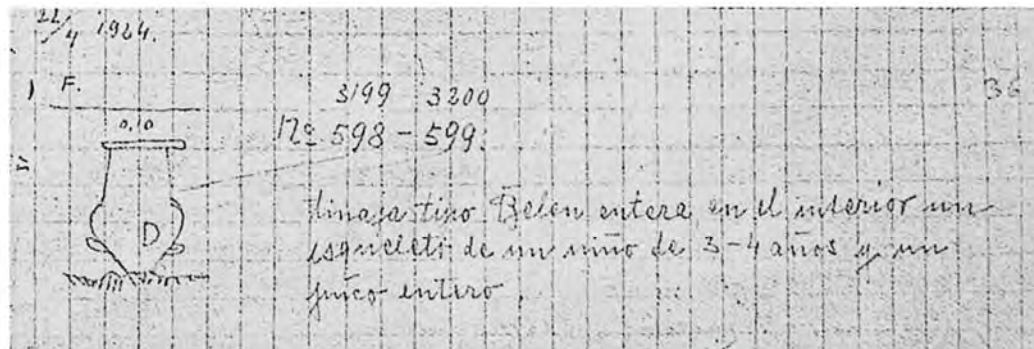 22/4 1924.
F.
3199 3200
36
0,10
Nº 598 - 599.
D
tinaja tipo Belen entera en el interior un
esqueleto de un niño de 3-4 años y un
puco entero.